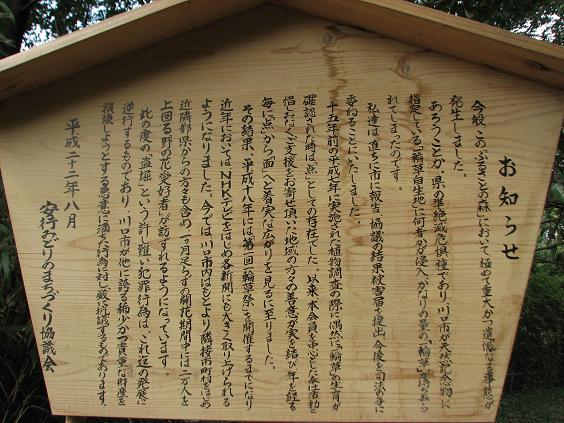 お知らせ
今般、この「ふるさとの森」において極めて重大かつ遺憾なる事態が
発生しました。
あろうことか、県の準絶滅危惧種であり、川口市が天然記念物に
指定している「一輪草自生地」に何者かが侵入、かなりの量の「一輪草」が持ち去ら
れてしまったのです。
私達は直ちに市に報告・協議の結果被害届を提出、今後を司法の手に
委ねることにいたしました。
十五年前の平成七年に実施された植物調査の際に偶然に「一輪草」の生育が
確認された時は「点」としての存在でした。以来、本会員を中心とした奉仕活動と
惜みなくご支援をお寄せ頂いた地域の方々の善意が実を結び、年を経る
毎に「点」から「面」へと着実な広がりを見るに至りました。
その結果、平成十八年には第一回「一輪草祭」を開催するまでになり
近年においては、NHKテレビをはじめ各新聞にも大きく取り上げられる
ようになりました。今では川口市内はもとより隣接市町村をはじめ
近隣都県からの方々も含め一ヶ月足らずの開花期間中には一万人を
上回る野の花愛好者が訪ずれるようになっています。
此の度の「盗掘」という許し難い犯罪行為は、これ迄の発展に
逆行するものであり、川口市が他に誇る稀少かつ貴重な財産を
損壊しようとする悪意に満ちた行為に対し厳に抗議するものであります。
平成二十二年八月
安行みどりのまちづくり協議会